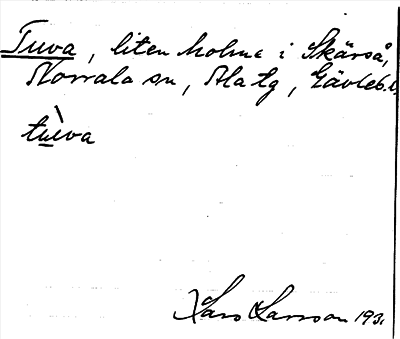 Tuva, liten holme i Skärså,
Norrala sn, Ala tg, Gävleb. l.
tuva
Lars Larsson 193